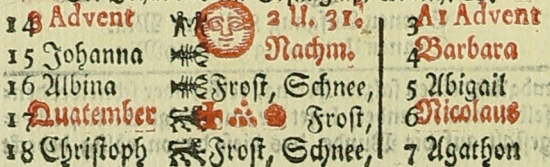 14 3 Advent 2 U. 31. 3 A1 Advent
15 Johanna Nachm. 4 Barbara
16 Albina Frost, Schnee, 5 Abigail
17 Quatember Frost, 6 Nicolaus
18 Christoph Frost, Schnee, 7 Agathon